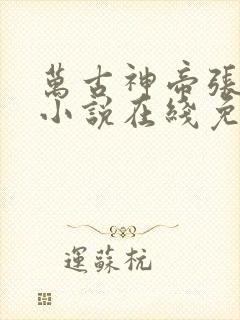 萬古神帝張
小說在綫免
運蘇杭